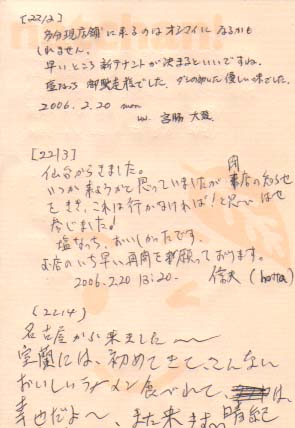 [2212]
多分現店舗に来るのはオシマイになるかも
しれません。
早いところ新テナントが決まるといいですね。
塩なっち 御馳走様でした。ダシの効いた優しい味でした。
2006.2.20 mon
宮勝 大登
[2213]
仙台からきました。
いつか来ようかと思っていましたが閉店の知らせ
をきき、これは行かなければ!と思いはせ
参じました!
塩なっち、おいしかったです。
お店のいち早い再開を願っております。
2006.2.20 13:20. 信夫(hotta)
(2214)
名古屋から来ました〜
室蘭には、初めてきて、こんない
おいしいラーメン食べれて、は、
幸せだよ〜、また来ます。晴紀